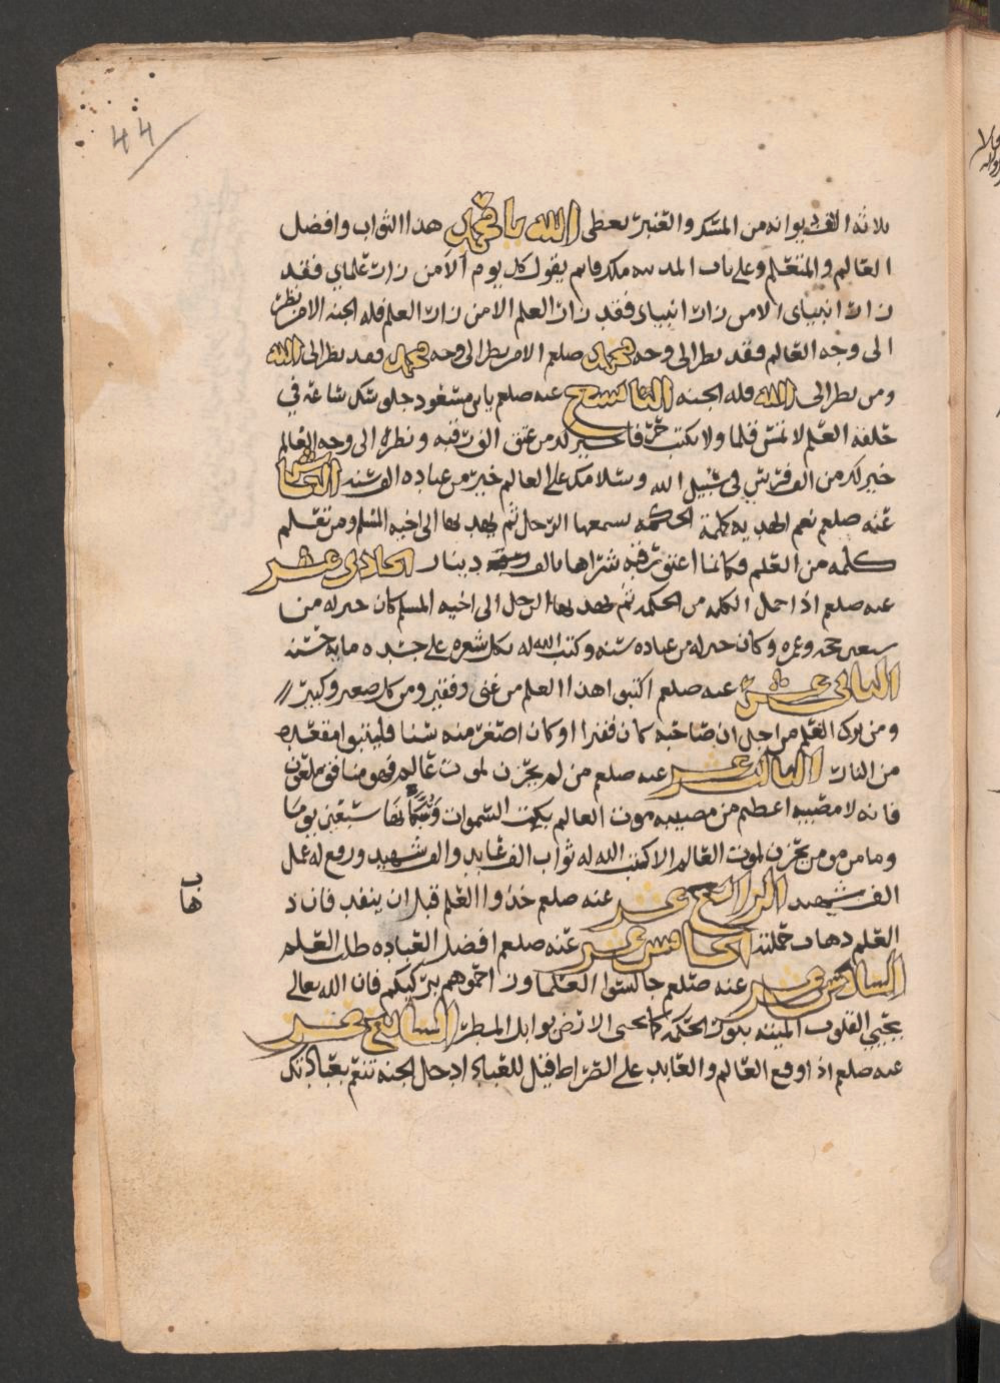 44
ثلاثه الف ديوانه من المسك والعنبر يعطى الله يا محمد هذا الثواب وافضل
العالم والمتعلم وعلى باب المدينه ملك قايم يقول كل يوم الا من زار علماى فقد
زار انبياى الا من زار انبياى فقد زار العلم الا من زار العلم فله الجنه الا من نظر
الى وجه العالم فقد نظر الى وجه محمد صلعم الا من نظر الى وجه محمد فقد نظر الى الله
ومن نظر الى الله فله الجنه التاسع عنه صلعم يابن مسعود جلوسك ساعه في
حلقه العلم لا تمس قلما ولا تكتب حرفا خير لك من عتق الف رقبه ونظرك الى وجه العالم
خير لك من الف فرس في سبيل الله وسلامك على العالم خير من عباده الف سنه العاشر
عنه صلعم نعم الهديه كلمة الحكمه يسمعها الرجل ثم يهديها الى اخيه المسلم ومن تعلم
كلمه من العلم فكانما اعتق رقبه شراها بالف دينار الحادى عشر
عنه صلعم اذا حمل الكلمه من الحكمه ثم يهديها الرجل الى اخيه المسلم كان خير له من
سبعين حجه وعمره وكان خير له من عباده سنه وكتب الله له بكل شعره على جسده مايه حسنه
الثانى عشر عنه صلعم اكتبوا هذا العلم من غنى وفقير ومن كل صغير وكبير
ومن ترك العلم من اجل ان صاحبه كان فقيرا او كان اصغر منه سنا فليتبوا مقعده
من النار الثالث عشر عنه صلعم من لم يحزن لموت عالم فهو منافق
فانه لا مصيبه اعظم من مصيبه موت العالم بكت السموات سبعين يوما
وما من مومن يحزن لموت العالم الا كتب الله له ثواب الف عابد والف شهيد ورفع له عمل
الف شهيد الرابع عشر عنه صلعم خذوا العلم قبل ان ينفد فان ذ
هاب
العلم ذهاب حملته الخامس عشر عنه صلعم افضل العباده طلب العلم
السادس عشر عنه صلعم جالسوا العلما وزاحموهم بركبكم فان الله تعالى
يحيي القلوب الميته بنور الحكمه كما يحيى الارض بوابل المطر السابع عشر
عنه صلعم اذا وقع العالم والعابد على الصراط قيل للعبا ادخل الجنه تنعم بعبادتك